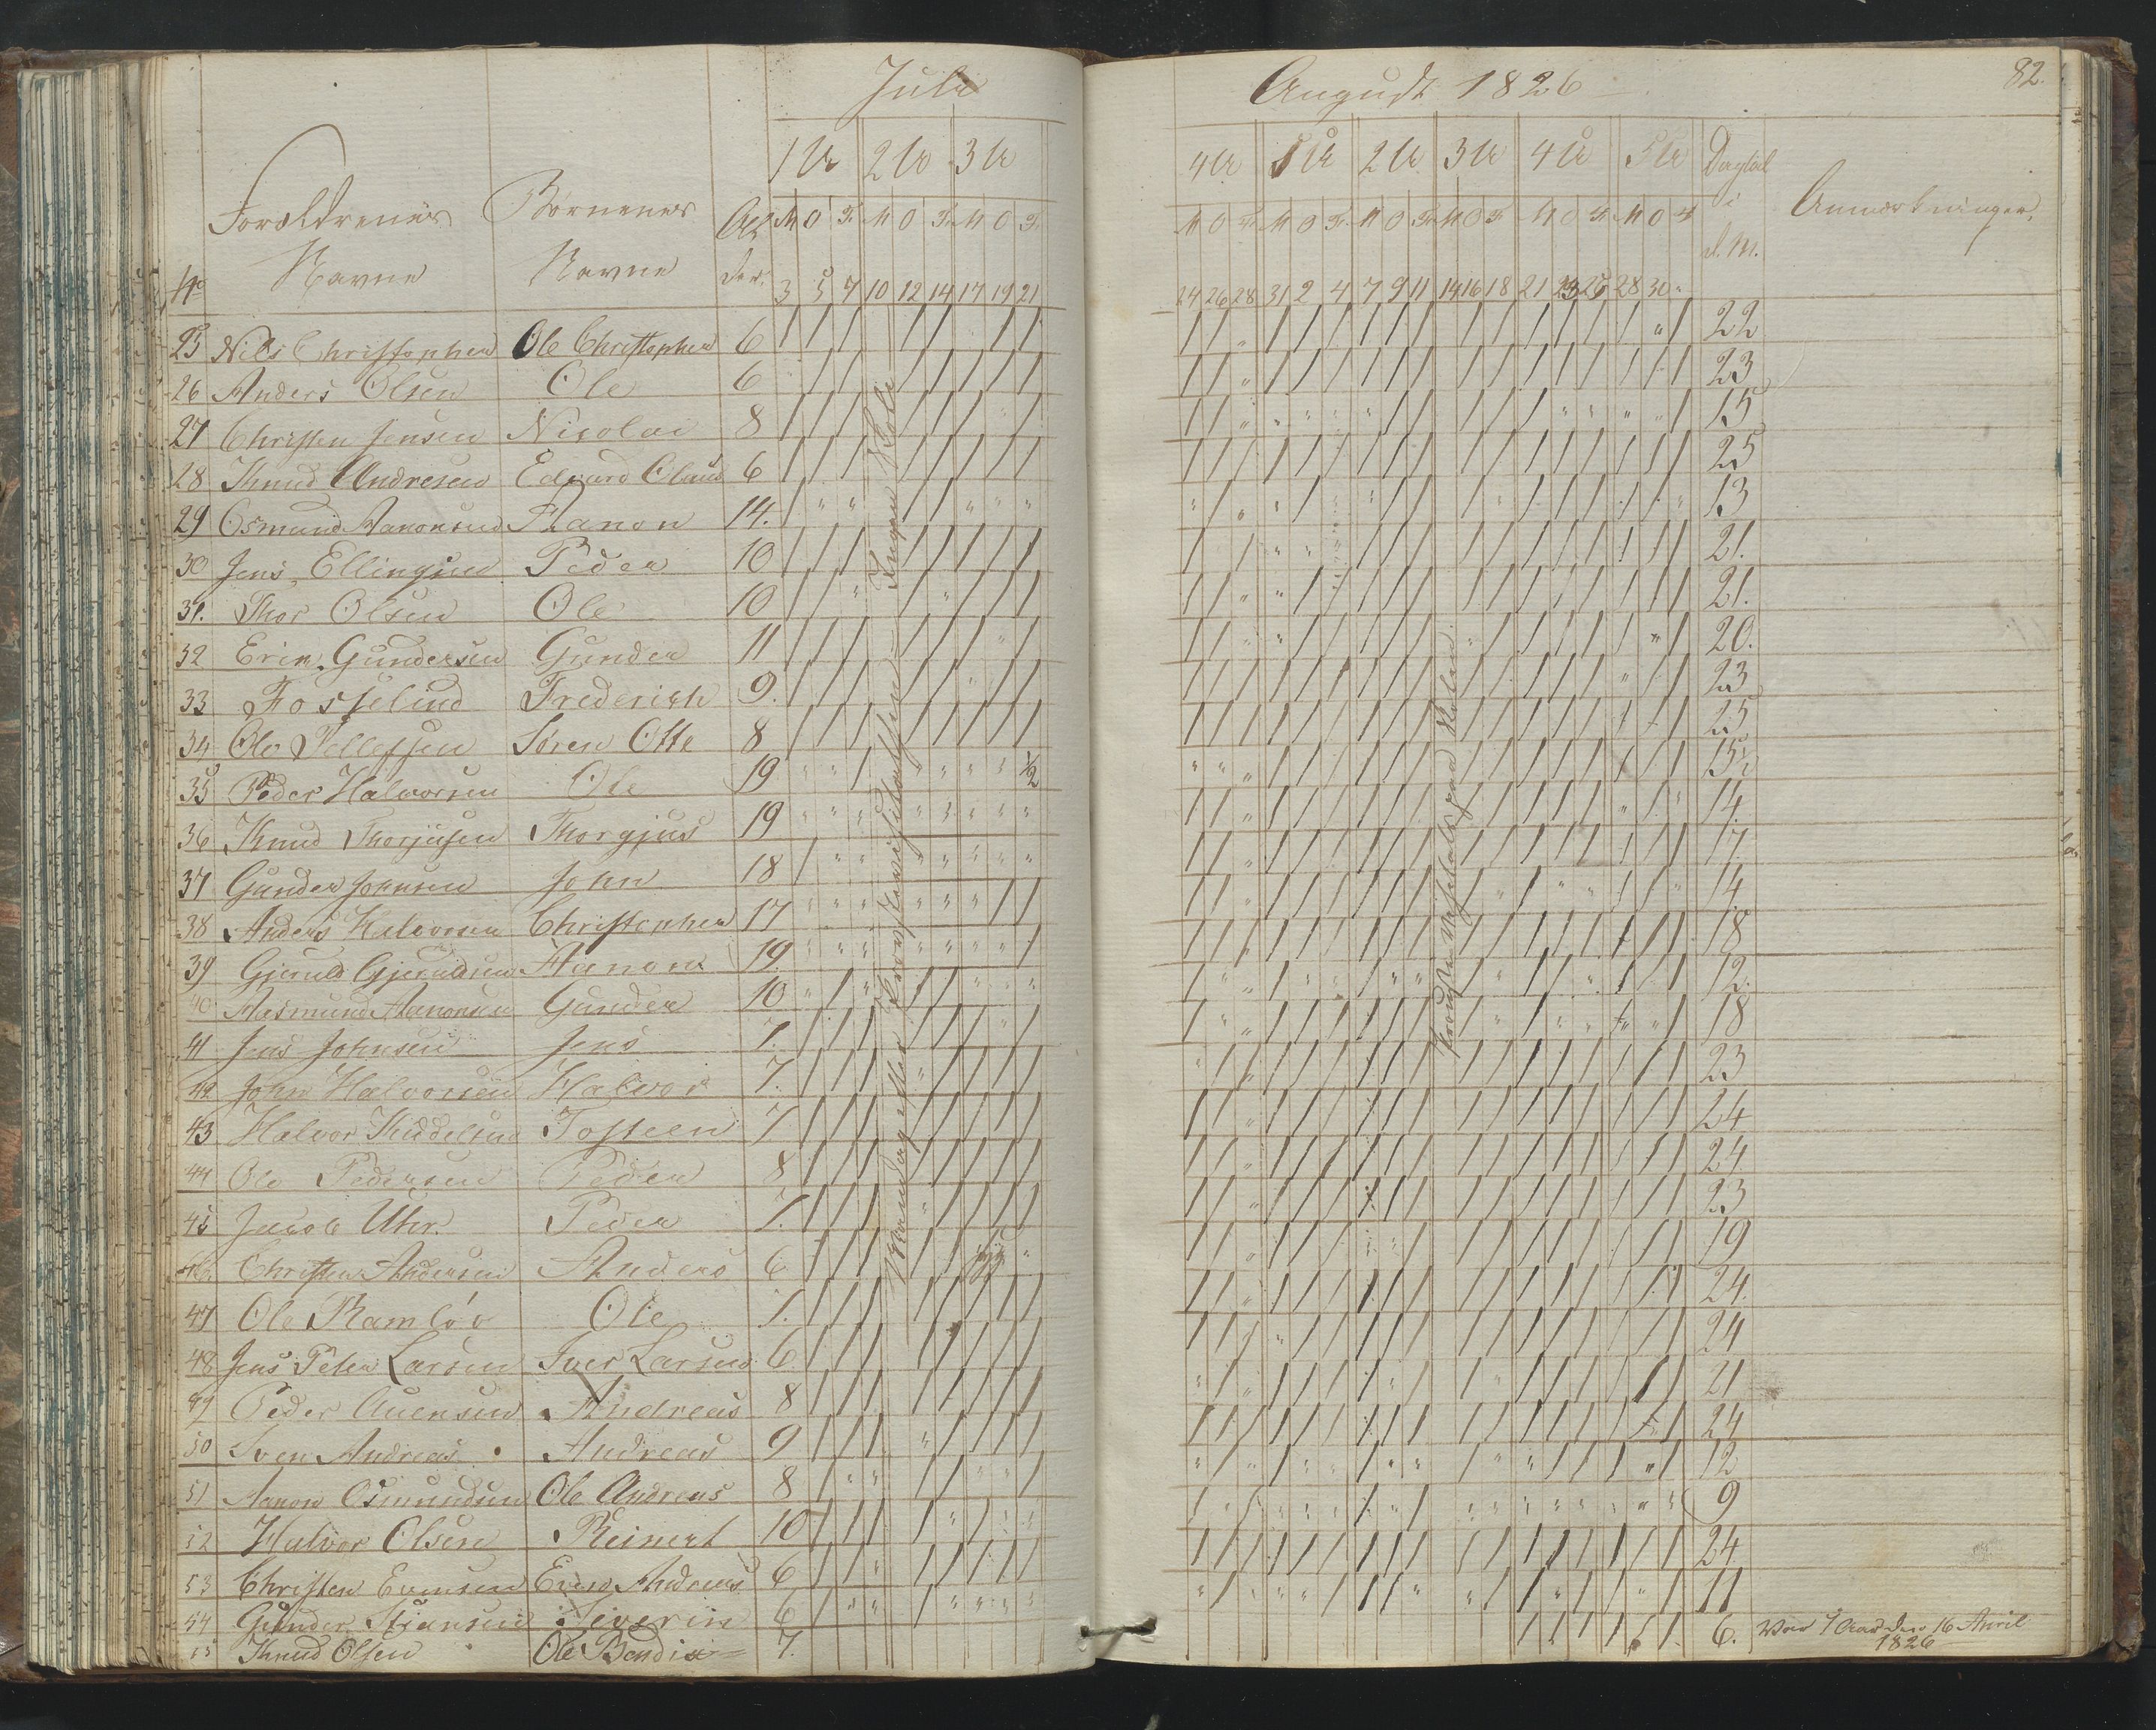 Juli
August 1826
82.
No
Forældrenes Navne
Börnenes Navne
Al der.
1 U 2 U 3 U
4 U 1 U 2 U 3 U 4 U 5 U
Dagtal i d. M.
Anmærkninger.
M O Fr. M O Fr. M O Fr.
M O Fr. M O Fr. M O Fr. M O Fr. M O Fr. M O Fr.
3 5 7 10 12 14 17 19 21
24 26 28 31 2 4 7 9 11 14 16 18 21 23 25 28 30
25 Niels Christopher Ole Christopher 6 22
26 Anders Olsen Ole 6 23
27 Christen Jensen Nicolai 8 15
28 Knud Andresen Edvard Claus 6 25
29 Osmund Aanonsen Aanon 14. 13
30 Jens Ellingsen Peder 10 21.
31. Thor Olsen Ole 10 21.
32 Erik Gundersen Gunder 11 20.
33 Fosselund Frederich 9. 23
34 Ole Tellefsen Søren Otte 8 25
35 Peder Halvorsen Ole 19 1/2 15½
36 Knud Thorjusen Thorgjus 19 14.
37 Gunder Johnsen John 18 17
38 Anders Halvorsen Christopher 17 14
39 Gjeruld Gjeruldsen Aanon 19. 18
40 Aasmund Aanonsen Gunder 10 12.
41 Jens Johnsen Jens 7. 18
42 John Halvorsen Halvor 7. 23
43 Halvor Tosteen 7 24
44 Ole Pedersen Peder 8 24
45 Jacob Uhr. Peder 7. 23
46 Christen Andersen Anders 6 19
47 Ole Ramlöv Ole 7. 24
48 Jens Peter Larsen Iver Larsen 6 24
49 Peder Auensen Andreas 8 21
50 Sven Andreas Andreas 9 24
51 Aanon Osmundsen Ole Andreas 8 12
52 Halvor Olsen Reinert 10 9
53 Christen Evensen Even Andreas 6 24
54 Gunder Severin 6 11
55 Knud Olsen Ole Bendix 7. 6. Var 7 Aar den 16 April
1826
Ingen Skole